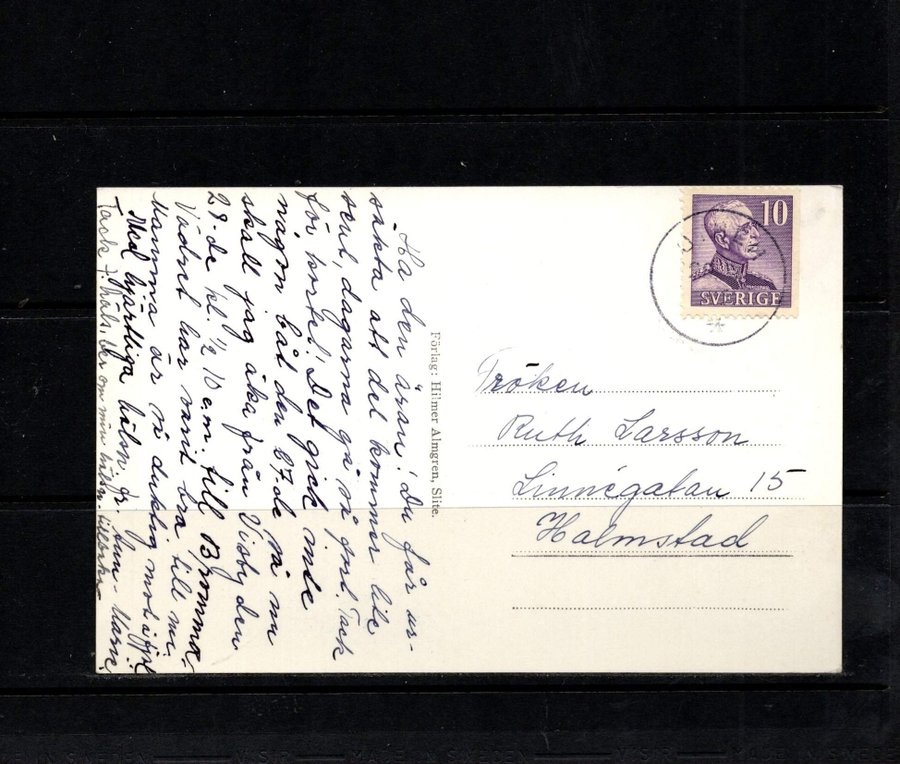 Ha den äran! Du får ur-
säkta att det kommer lite
sent, dagarna gå så fort. Tack
för kortet! Det gick inte
någon båt den 27-de så nu
skall jag åka från Visby den
29-de kl. ½ 10 e.m. till Bromma.
Vädret har varit bra till mi.
Mamma är så duktig mot i fjol
Med hjärtliga häln. fr. Ann-Marie
Tack f. häls. ber om min
Förlag: Hilmer Almgren, Slite.
10
SVERIGE
Fröken
Ruth Larsson
Linnégatan 15
Halmstad
MADE IN SWEDEN